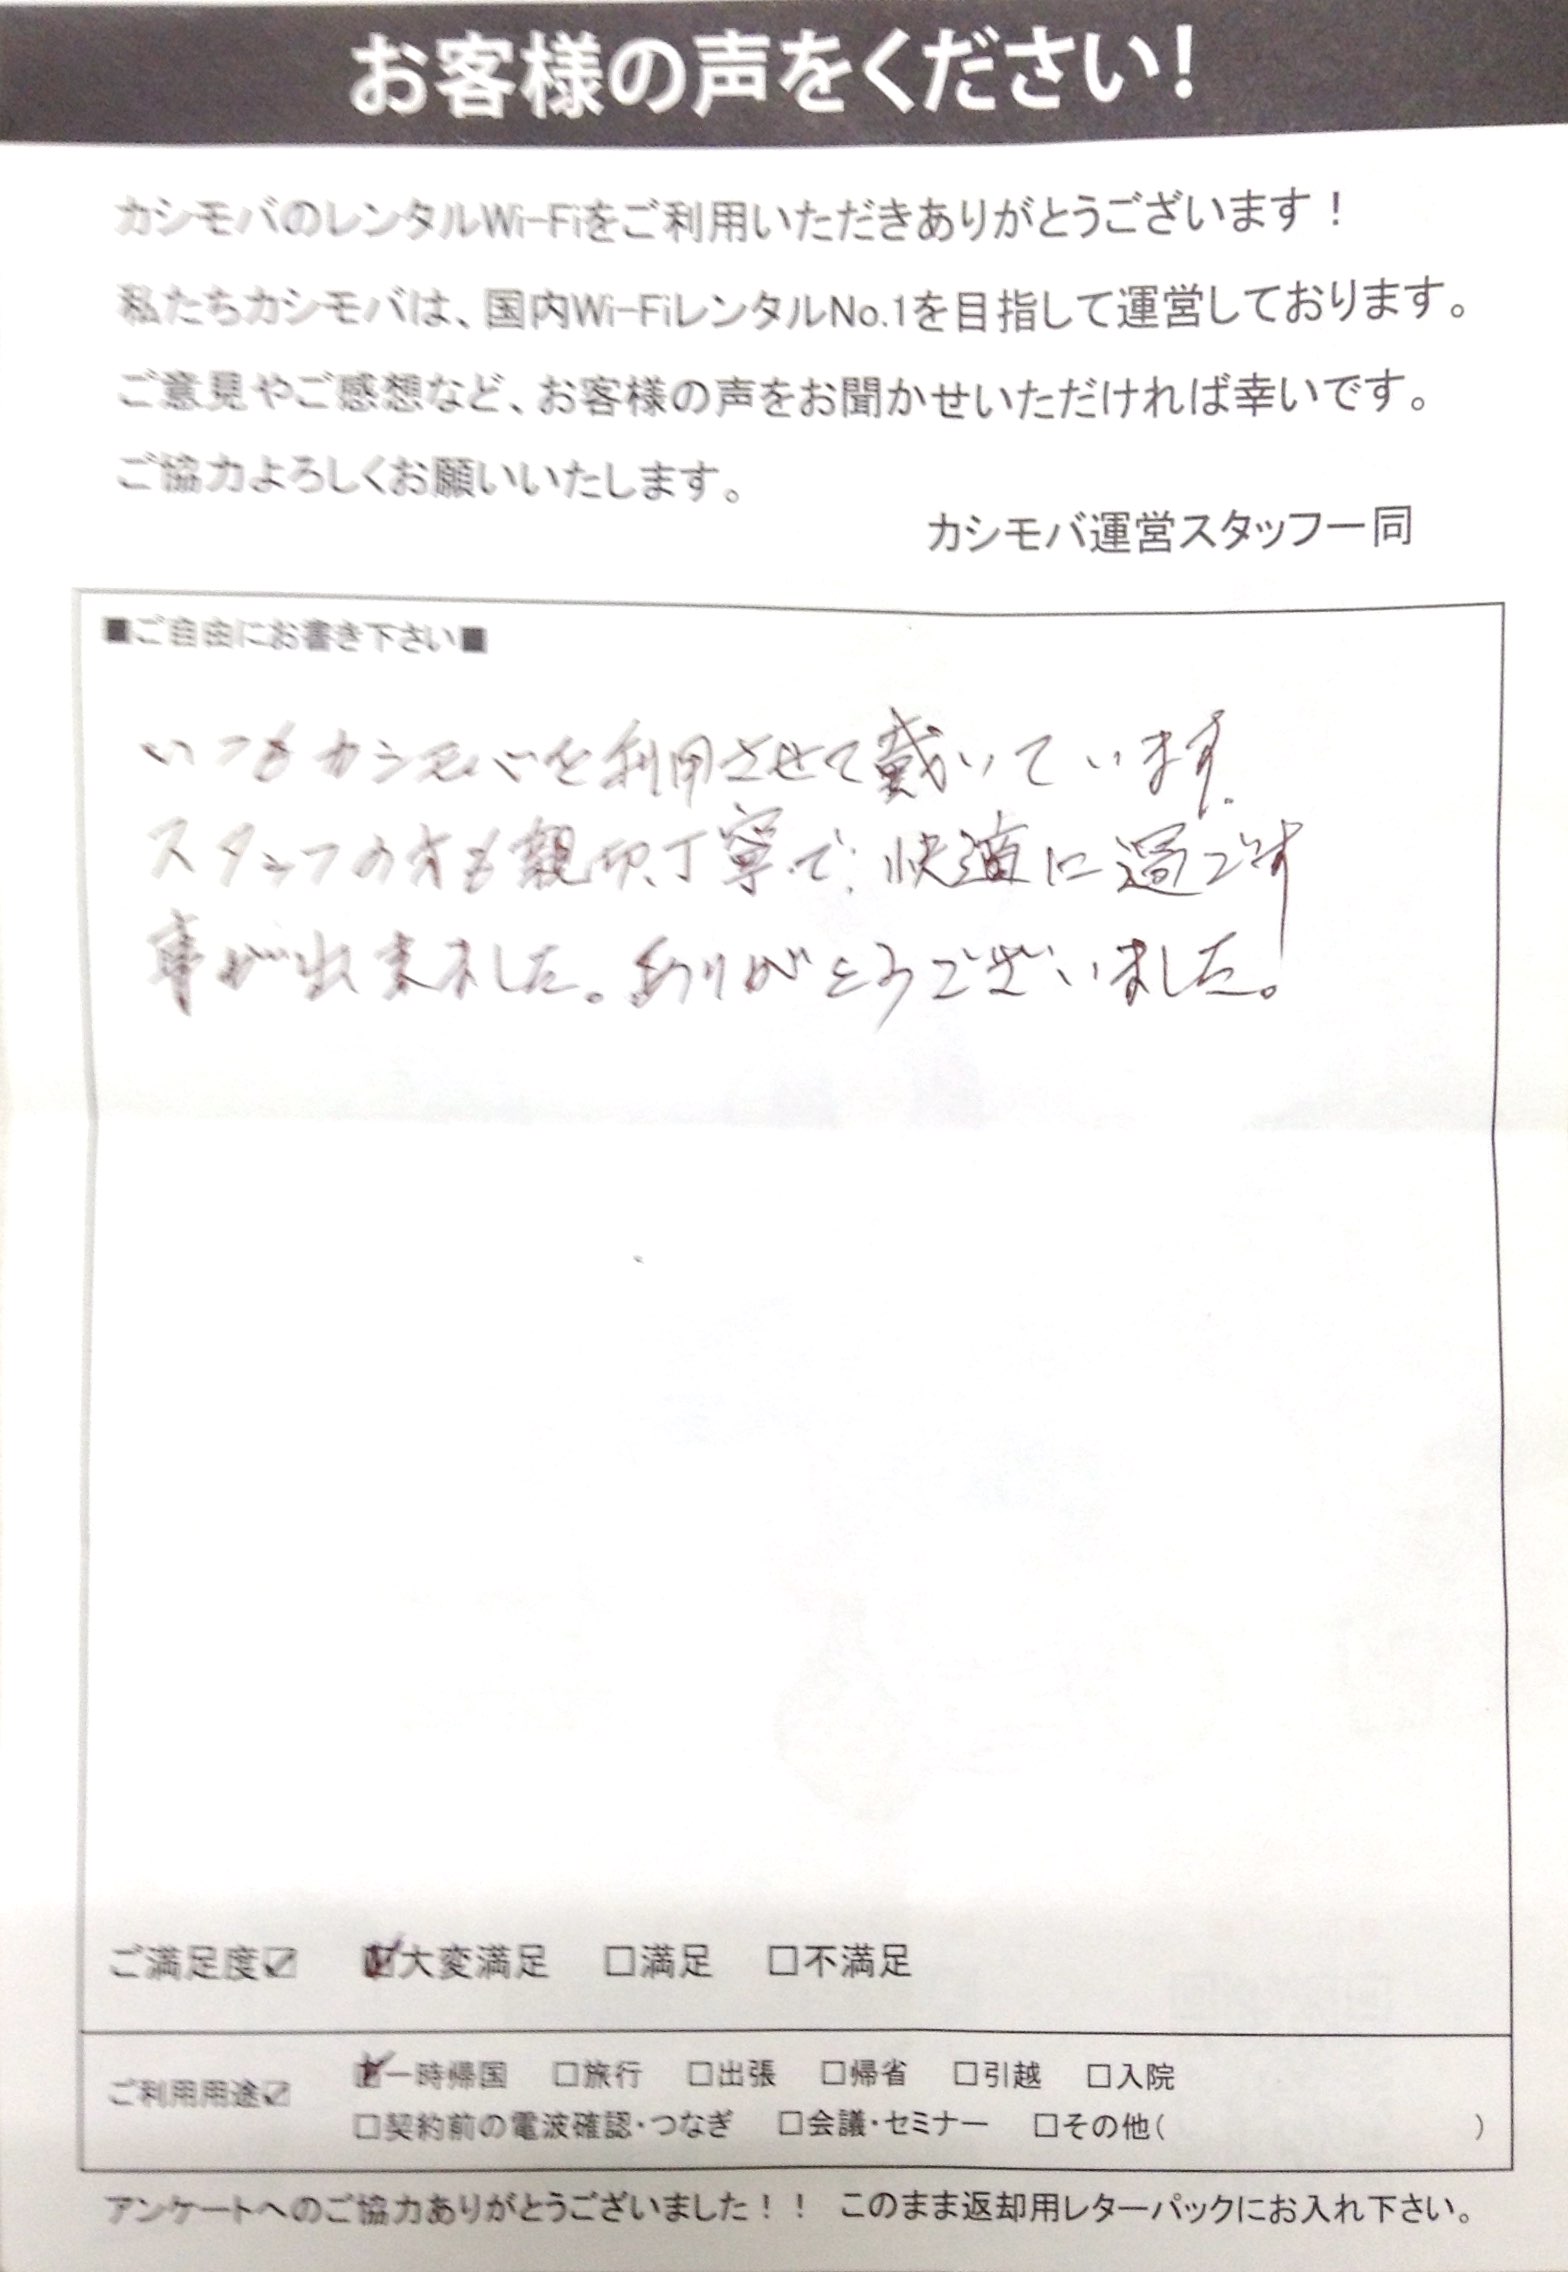 お客様の声をください!
カシモバのレンタルWi-Fiをご利用いただきありがとうございます！
私たちカシモバは、国内Wi-FiレンタルNo.1を目指して運営しております。
ご意見やご感想など、お客様の声をお聞かせいただければ幸いです。
ご協力よろしくお願いいたします。
カシモバ運営スタッフ一同
■ご自由にお書き下さい■
いつもカシモバを利用させて戴いています.
スタッフの方も親切、丁寧で、快適に過ごす
事が出来ました。ありがとうございました。
ご満足度☑ ☑大変満足 □満足 □不満足
ご利用用途☑ ☑一時帰国 □旅行 □出張 □帰省 □引越 □入院
□契約前の電波確認・つなぎ □会議・セミナー □その他( )
アンケートへのご協力ありがとうございました！！ このまま返却用レターパックにお入れ下さい。